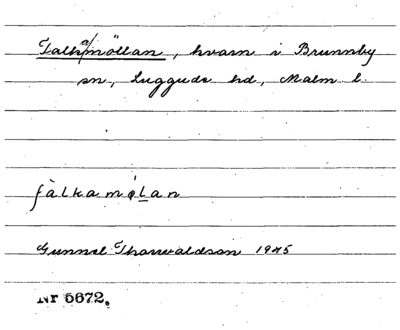 Falk/a/möllan, kvarn i Brunnby
sn, Luggude hd, Malm l.
fàlkamø̨lan
Gunnel Thorvaldson 1945
Nr 5672.